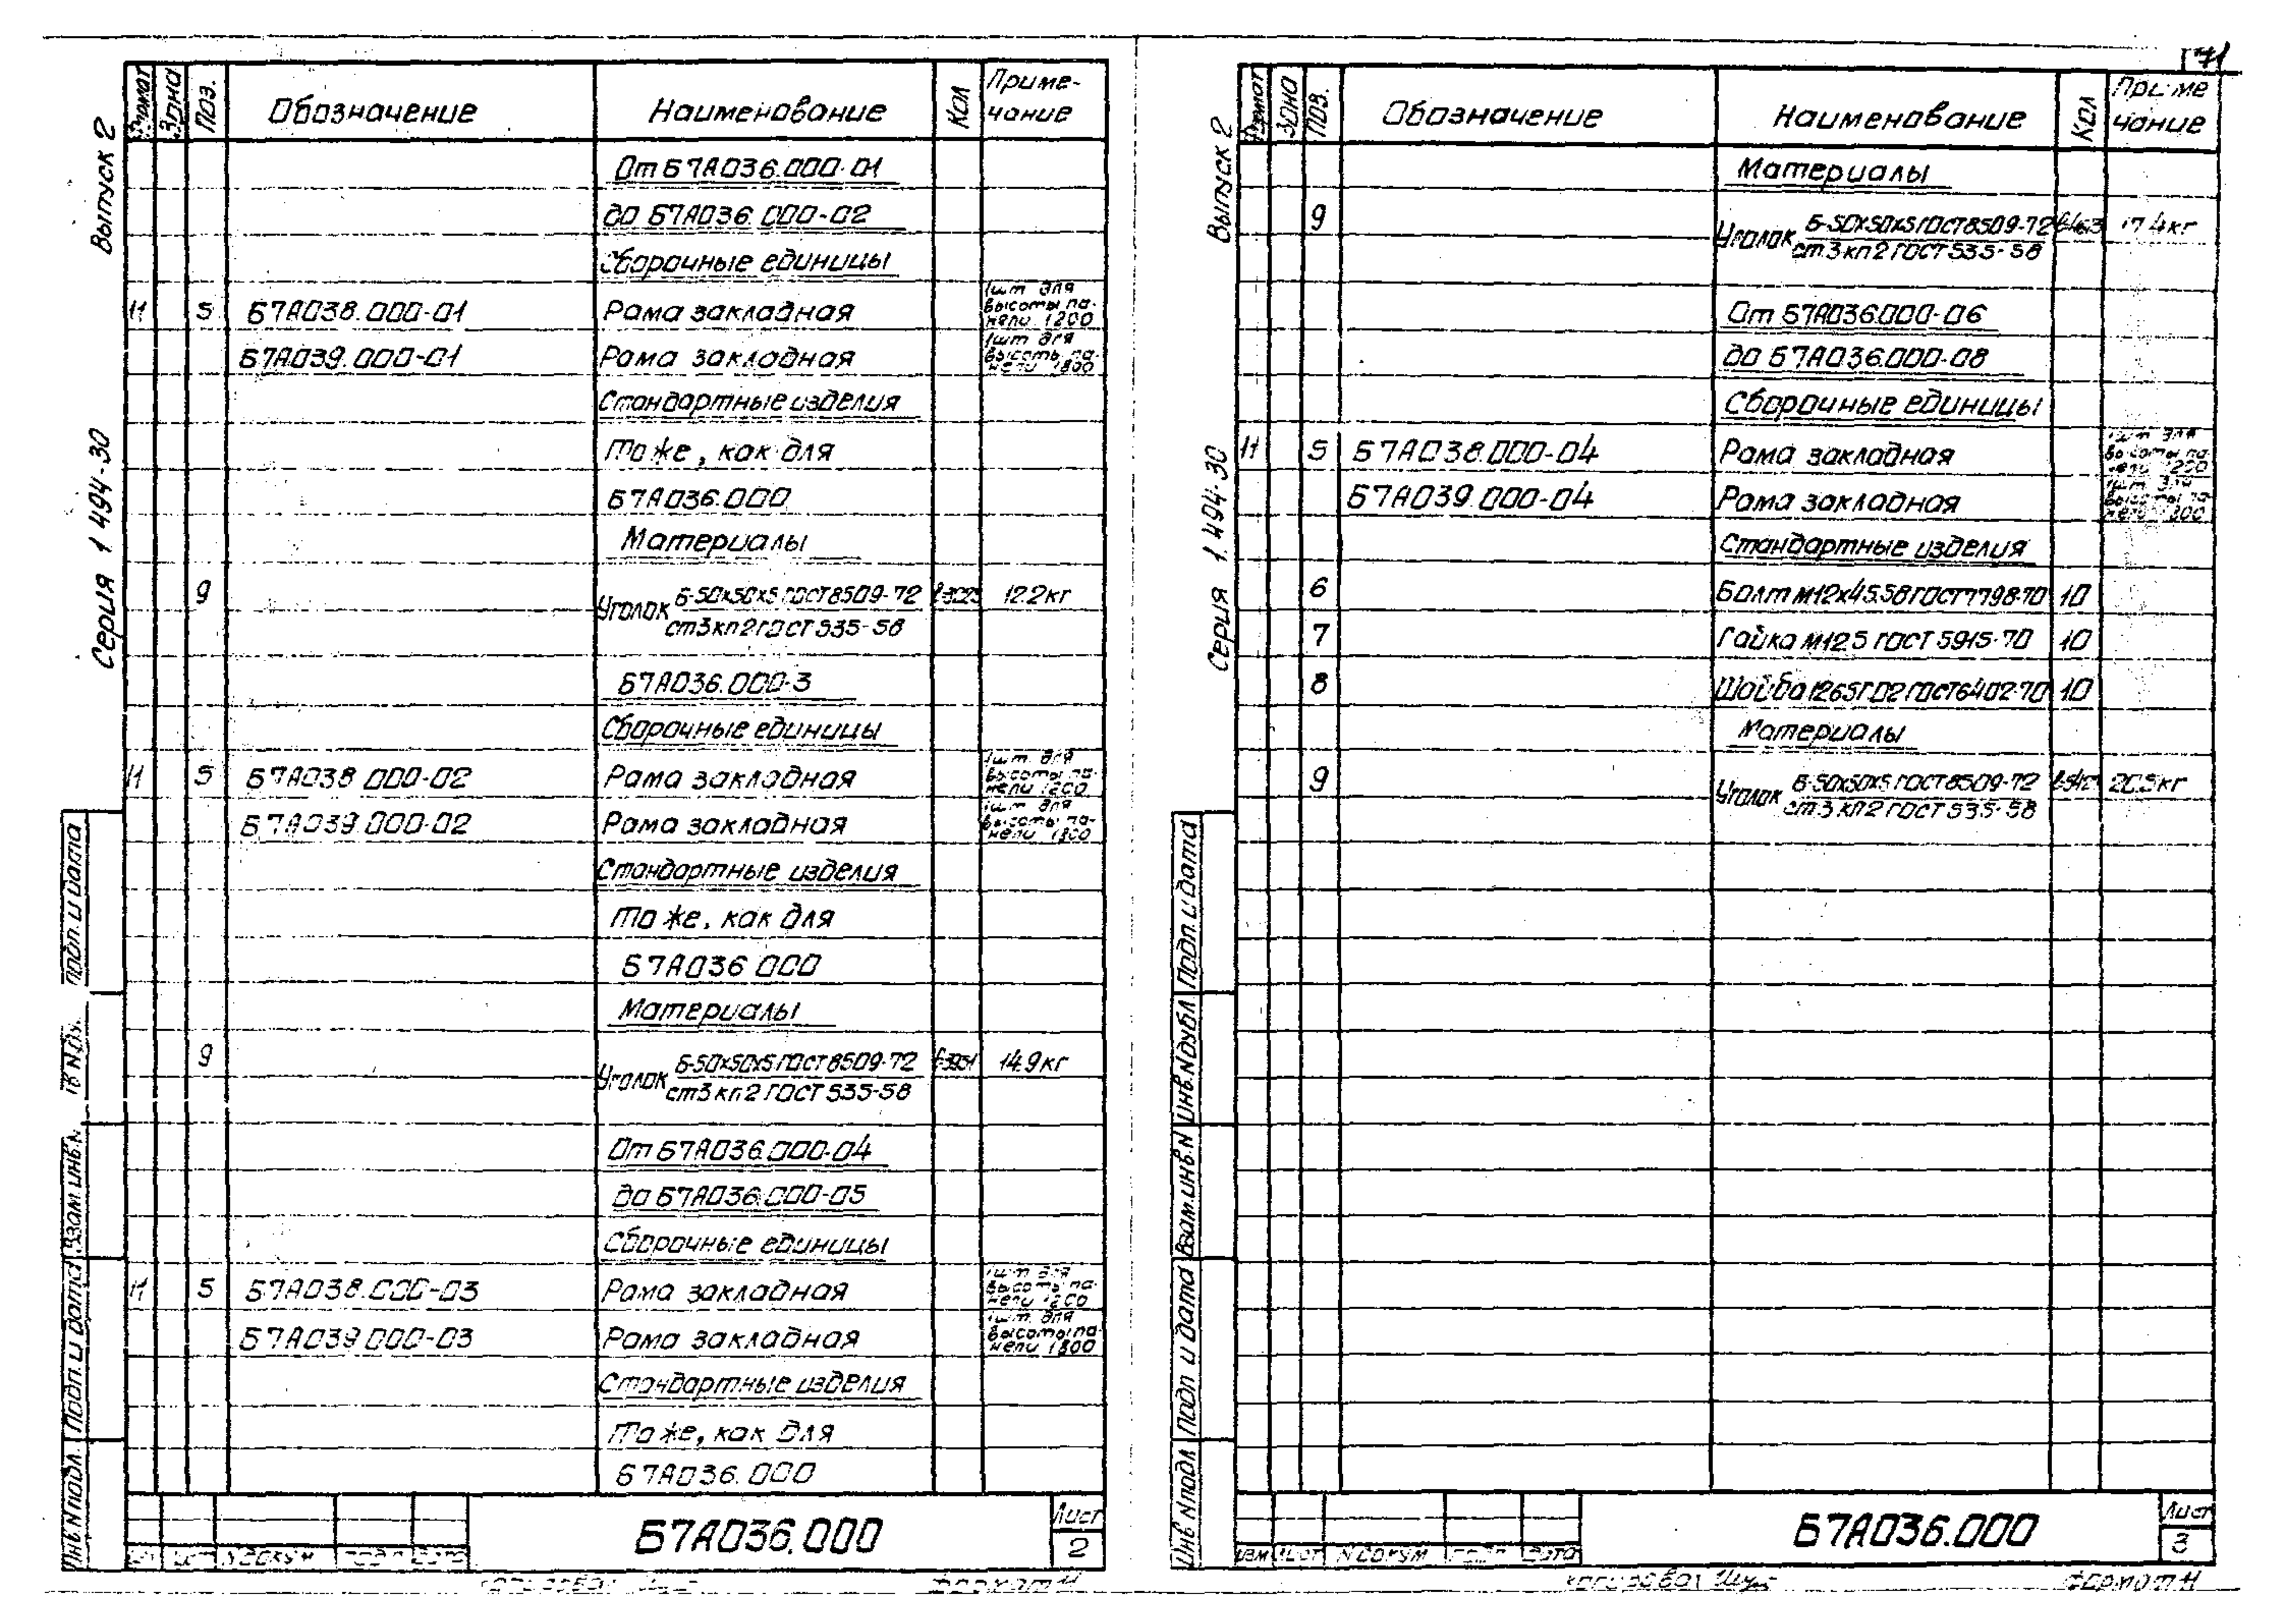 71
Серия 1 494-30 Выпуск 2
Формат Зона Поз. Обозначение Наименование Кол Примечание
От Б7А036.000-01
до Б7А036.000-02
Сборочные единицы
11 5 Б7А038.000-01 Рама закладная 1шт для высоты панели 1200
Б7А039.000-01 Рама закладная 1шт для высоты панели 1800
Стандартные изделия
То же, как для
Б7А036.000
Материалы
9 Уголок Б-50х50х5 ГОСТ 8509-72 12.2кг
ст3кп2 ГОСТ 535-58
Б7А036.000-3
Сборочные единицы
11 5 Б7А038 000-02 Рама закладная 1шт для высоты панели 1200
Б7А039.000-02 Рама закладная 1шт для высоты панели 1800
Стандартные изделия
То же, как для
Б7А036 000
Материалы
9 Уголок Б-50х50х5 ГОСТ 8509-72 ℓ-3951 14.9кг
ст3кп2 ГОСТ 535-58
От Б7А036.000-04
до Б7А036.000-05
Сборочные единицы
11 5 Б7А038.000-03 Рама закладная 1шт для высоты панели 1200
Б7А039 000-03 Рама закладная 1шт для высоты панели 1800
Стандартные изделия
То же, как для
Б7А036.000
Инв.N подл. Подп. и дата Взам.инв.N Подп. и дата
N докум подп дата
Б7А036.000
Лист
2
Формат 11
Серия 1.494-30 Выпуск 2
Формат Зона Поз. Обозначение Наименование Кол Примечание
Материалы
9 Уголок Б-50х50х5 ГОСТ 8509-72 17.4кг
ст3кп2 ГОСТ 535-58
От Б7А036.000-06
до Б7А036.000-08
Сборочные единицы
11 5 Б7А038.000-04 Рама закладная 1шт для высоты панели 1200
Б7А039.000-04 Рама закладная 1шт для высоты панели 1800
Стандартные изделия
6 Болт М12х45.58 ГОСТ 7798-70 10
7 Гайка М12 5 ГОСТ 5915-70 10
8 Шайба 12 65Г 02 ГОСТ 6402-70 10
Материалы
9 Уголок Б-50х50х5 ГОСТ 8509-72 20.5кг
ст3кп2 ГОСТ 535-58
Инв N подл Подп и дата Взам.инв.N Инв.N дубл Подп. и дата
Изм Лист N докум подп дата
Б7А036.000
Лист
3
Копировал
Формат 11